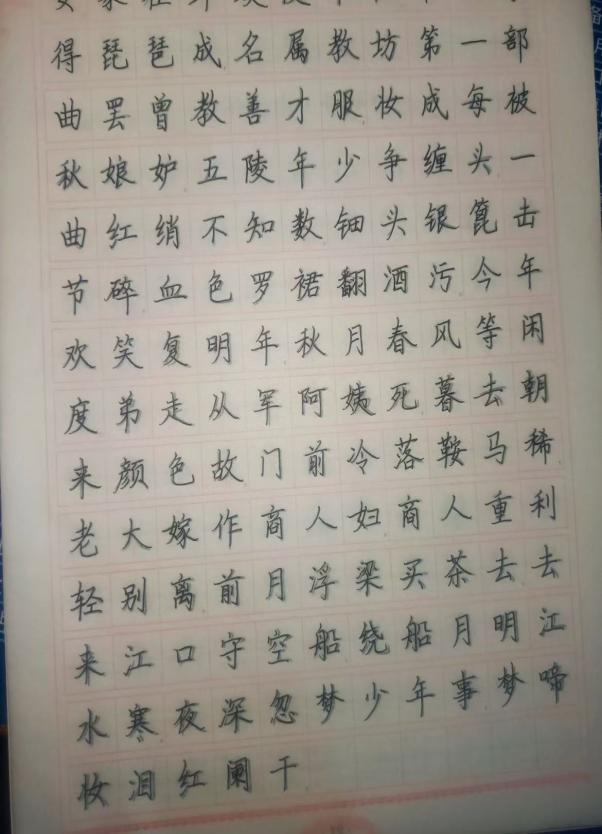 得琵琶成名属教坊第一部
曲罢曾教善才服妆成每被
秋娘妒五陵年少争缠头一
曲红绡不知数钿头银篦击
节碎血色罗裙翻酒污今年
欢笑复明年秋月春风等闲
度弟走从军阿姨死暮去朝
来颜色故门前冷落鞍马稀
老大嫁作商人妇商人重利
轻别离前月浮梁买茶去去
来江口守空船绕船月明江
水寒夜深忽梦少年事梦啼
妆泪红阑干